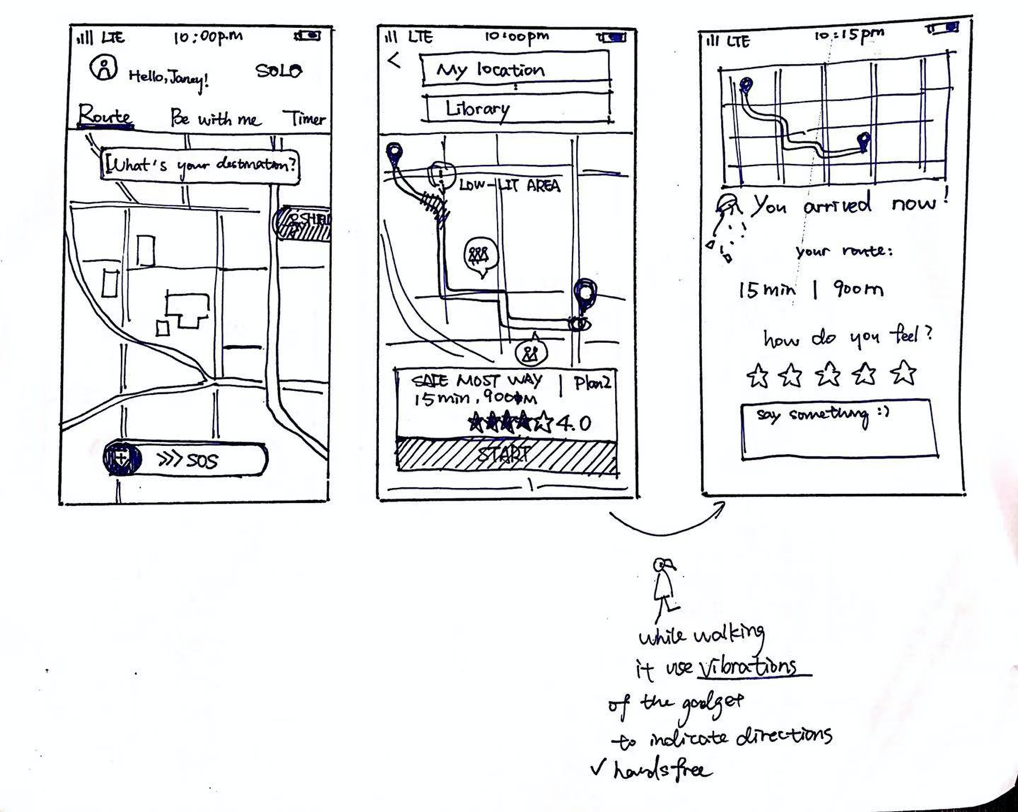 LTE 10:00p.m
Hello, Janey!
SOLO
Route Be with me Timer
What's your destination?
>>> SOS
LTE 10:00pm
<
My location
Library
LOW-LIT AREA
SAFE MOST WAY | Plan2
15 min, 900m
4.0
START
LTE 10:15pm
You arrived now!
your route:
15min | 900m
how do you feel?
say something :)
while walking
it use vibrations
of the gadget
to indicate directions
✓ handsfree